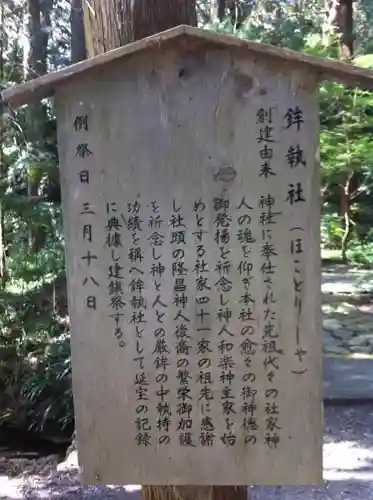 鉾執社（ほことりしゃ）
創建由来 神社に奉仕された先祖代々の社家神
人の魂を仰ぎ本社の愈々の御神徳の
御発揚を祈念し神人和楽神主家を始
めとする社家四十一家の祖先に感謝
し社頭の隆昌神人後裔の繁栄御加護
を祈念し神と人との厳鉾の中執持の
功績を称へ鉾執社として延宝の記録
に典據し建鎮祭する。
例祭日 三月十八日